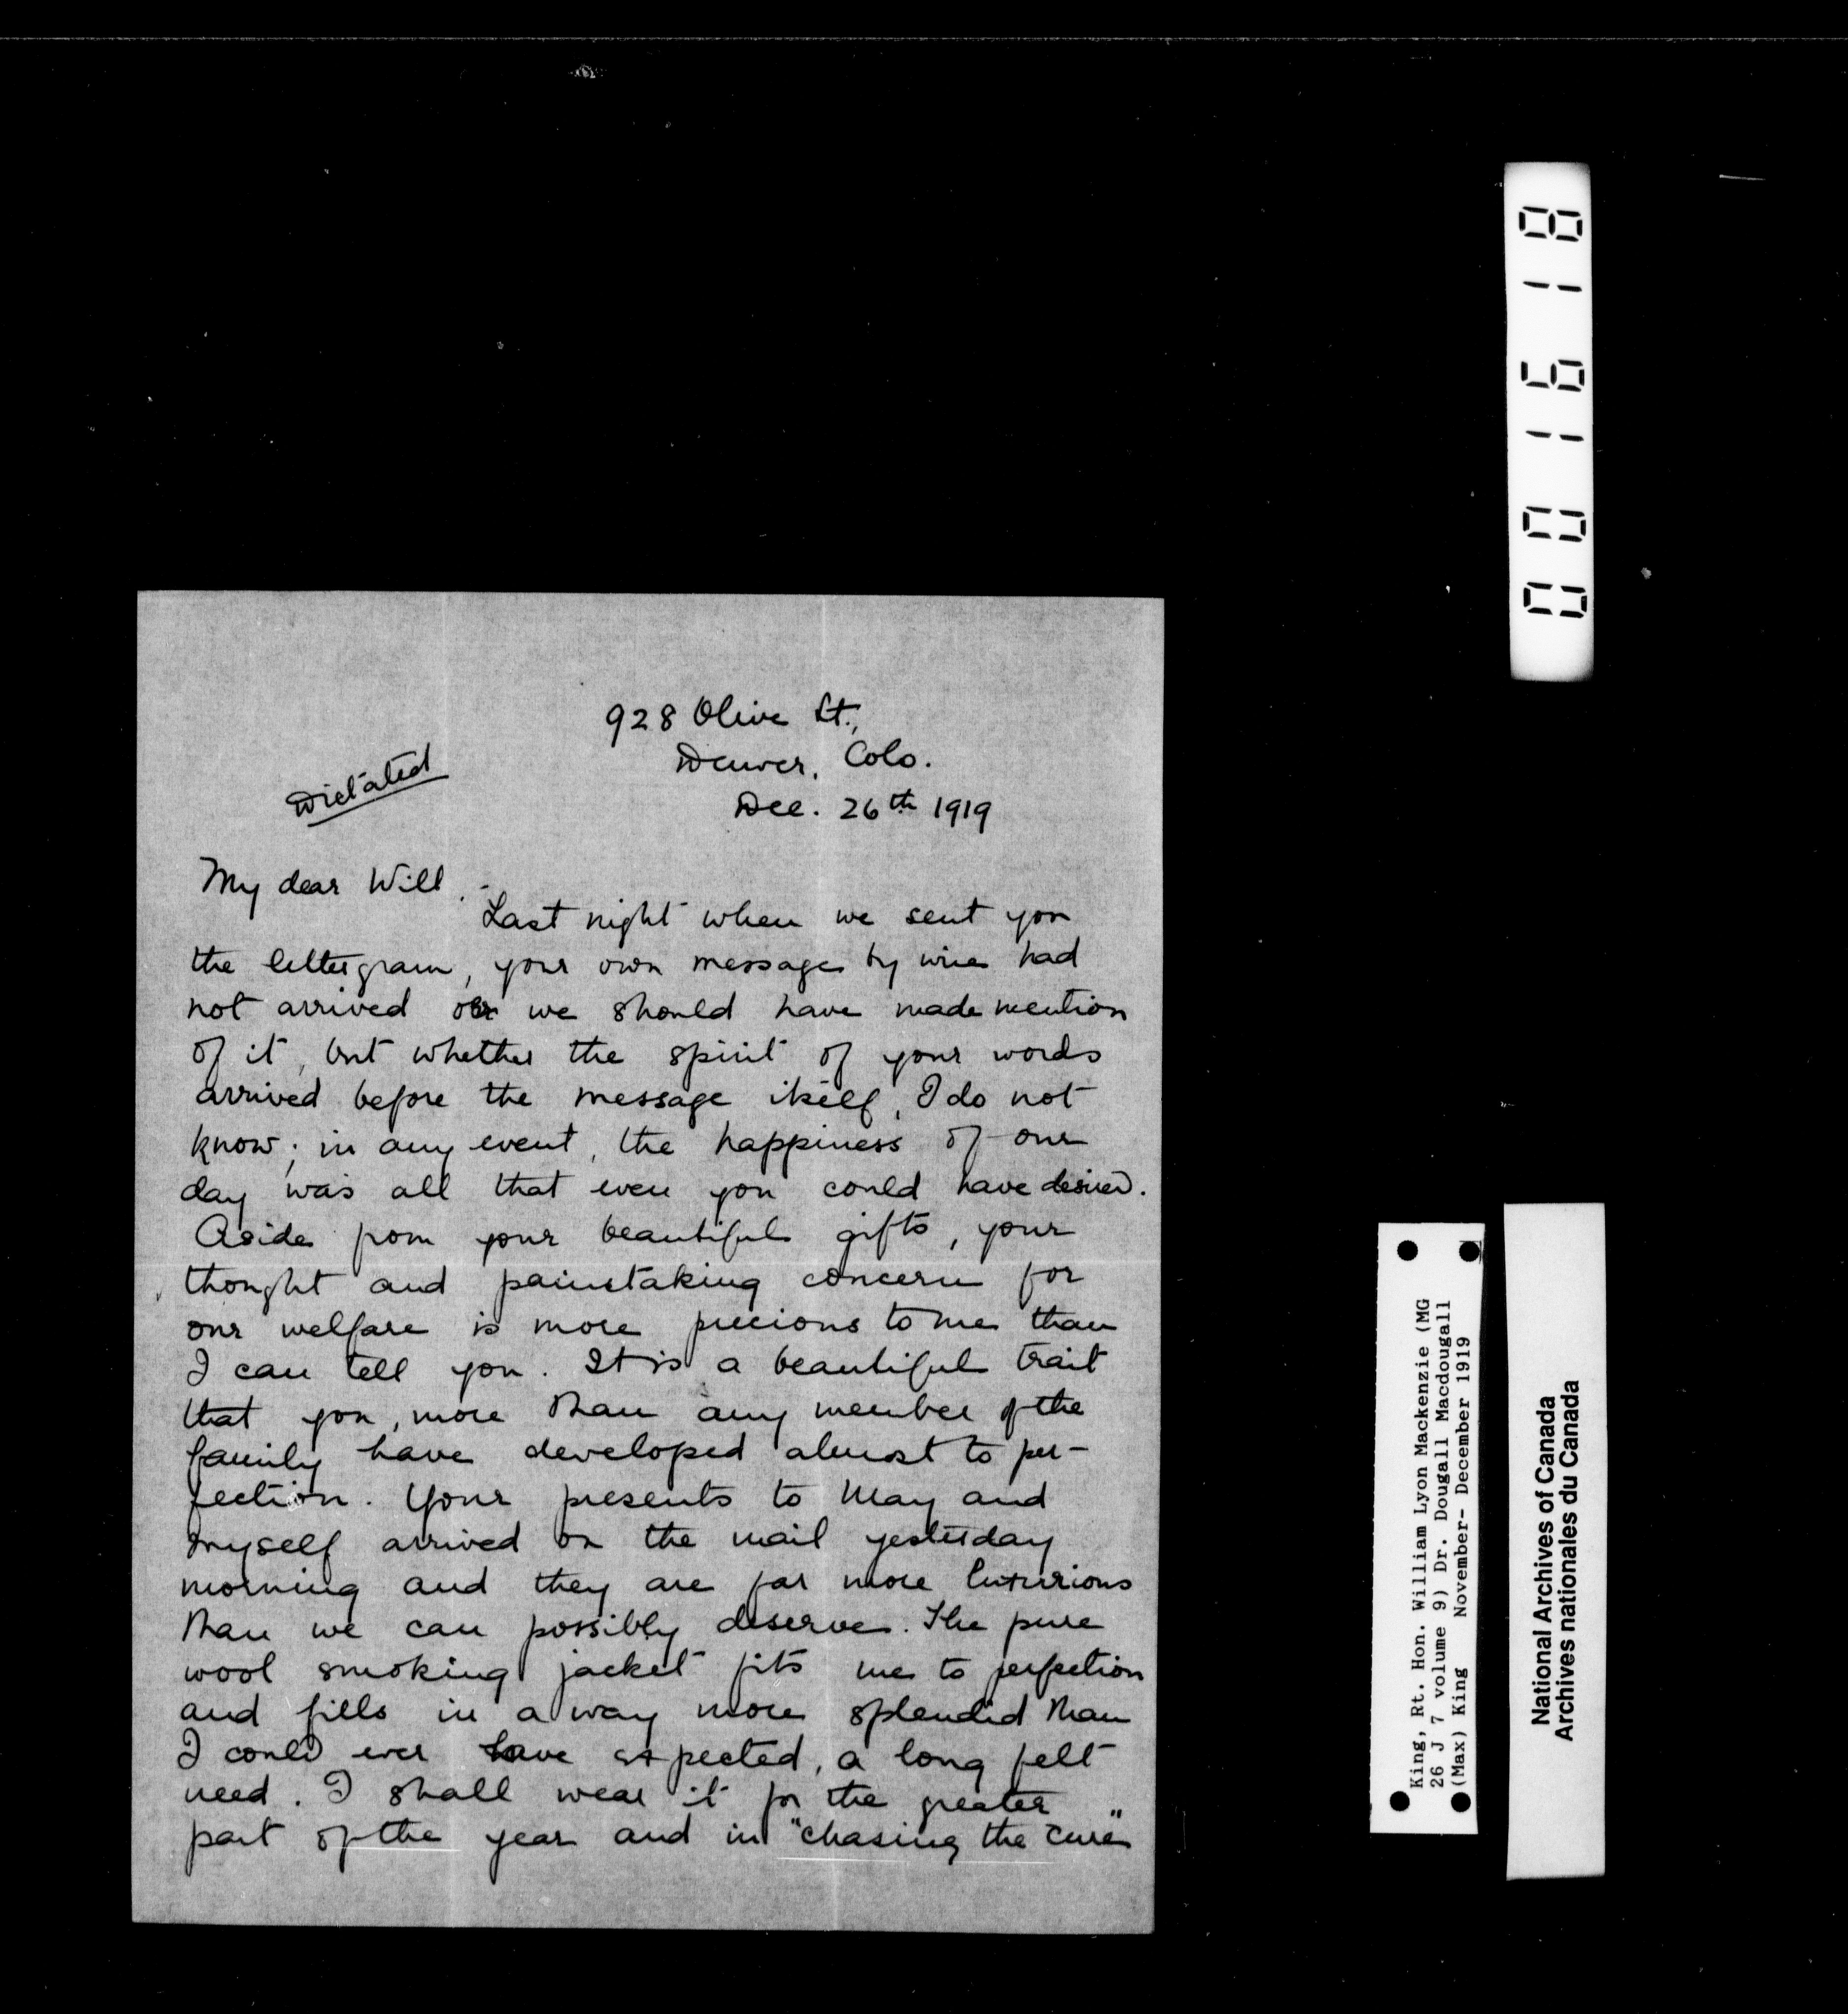 928 Olive St.,
Denver, Colo.
Dictated
Dec. 26th 1919
My dear Will,-
Last night when we sent you
the lettergram, your own message by wire had
not arrived or we should have made mention
of it, but whether the spirit of your words
arrived before the message itself, I do not
know; in any event, the happiness of our
day was all that even you could have desired.
Aside from your beautiful gifts, your
thought and painstaking concern for
our welfare is more precious to me than
I can tell you. It is a beautiful trait
that you, more than any member of the
family have developed almost to per-
fection. Your presents to May and
myself arrived on the mail yesterday
morning and they are far more luxurious
than we can possibly deserve. The pure
wool smoking jacket fits me to perfection
and fills in a way more splendid than
I could ever have expected, a long felt
need. I shall wear it for the greater
part of the year and in "chasing the cure"
001618
King, Rt. Hon. William Lyon Mackenzie (MG
26 J 7 volume 9) Dr. Dougall Macdougall
(Max) King November- December 1919
National Archives of Canada
Archives nationales du Canada